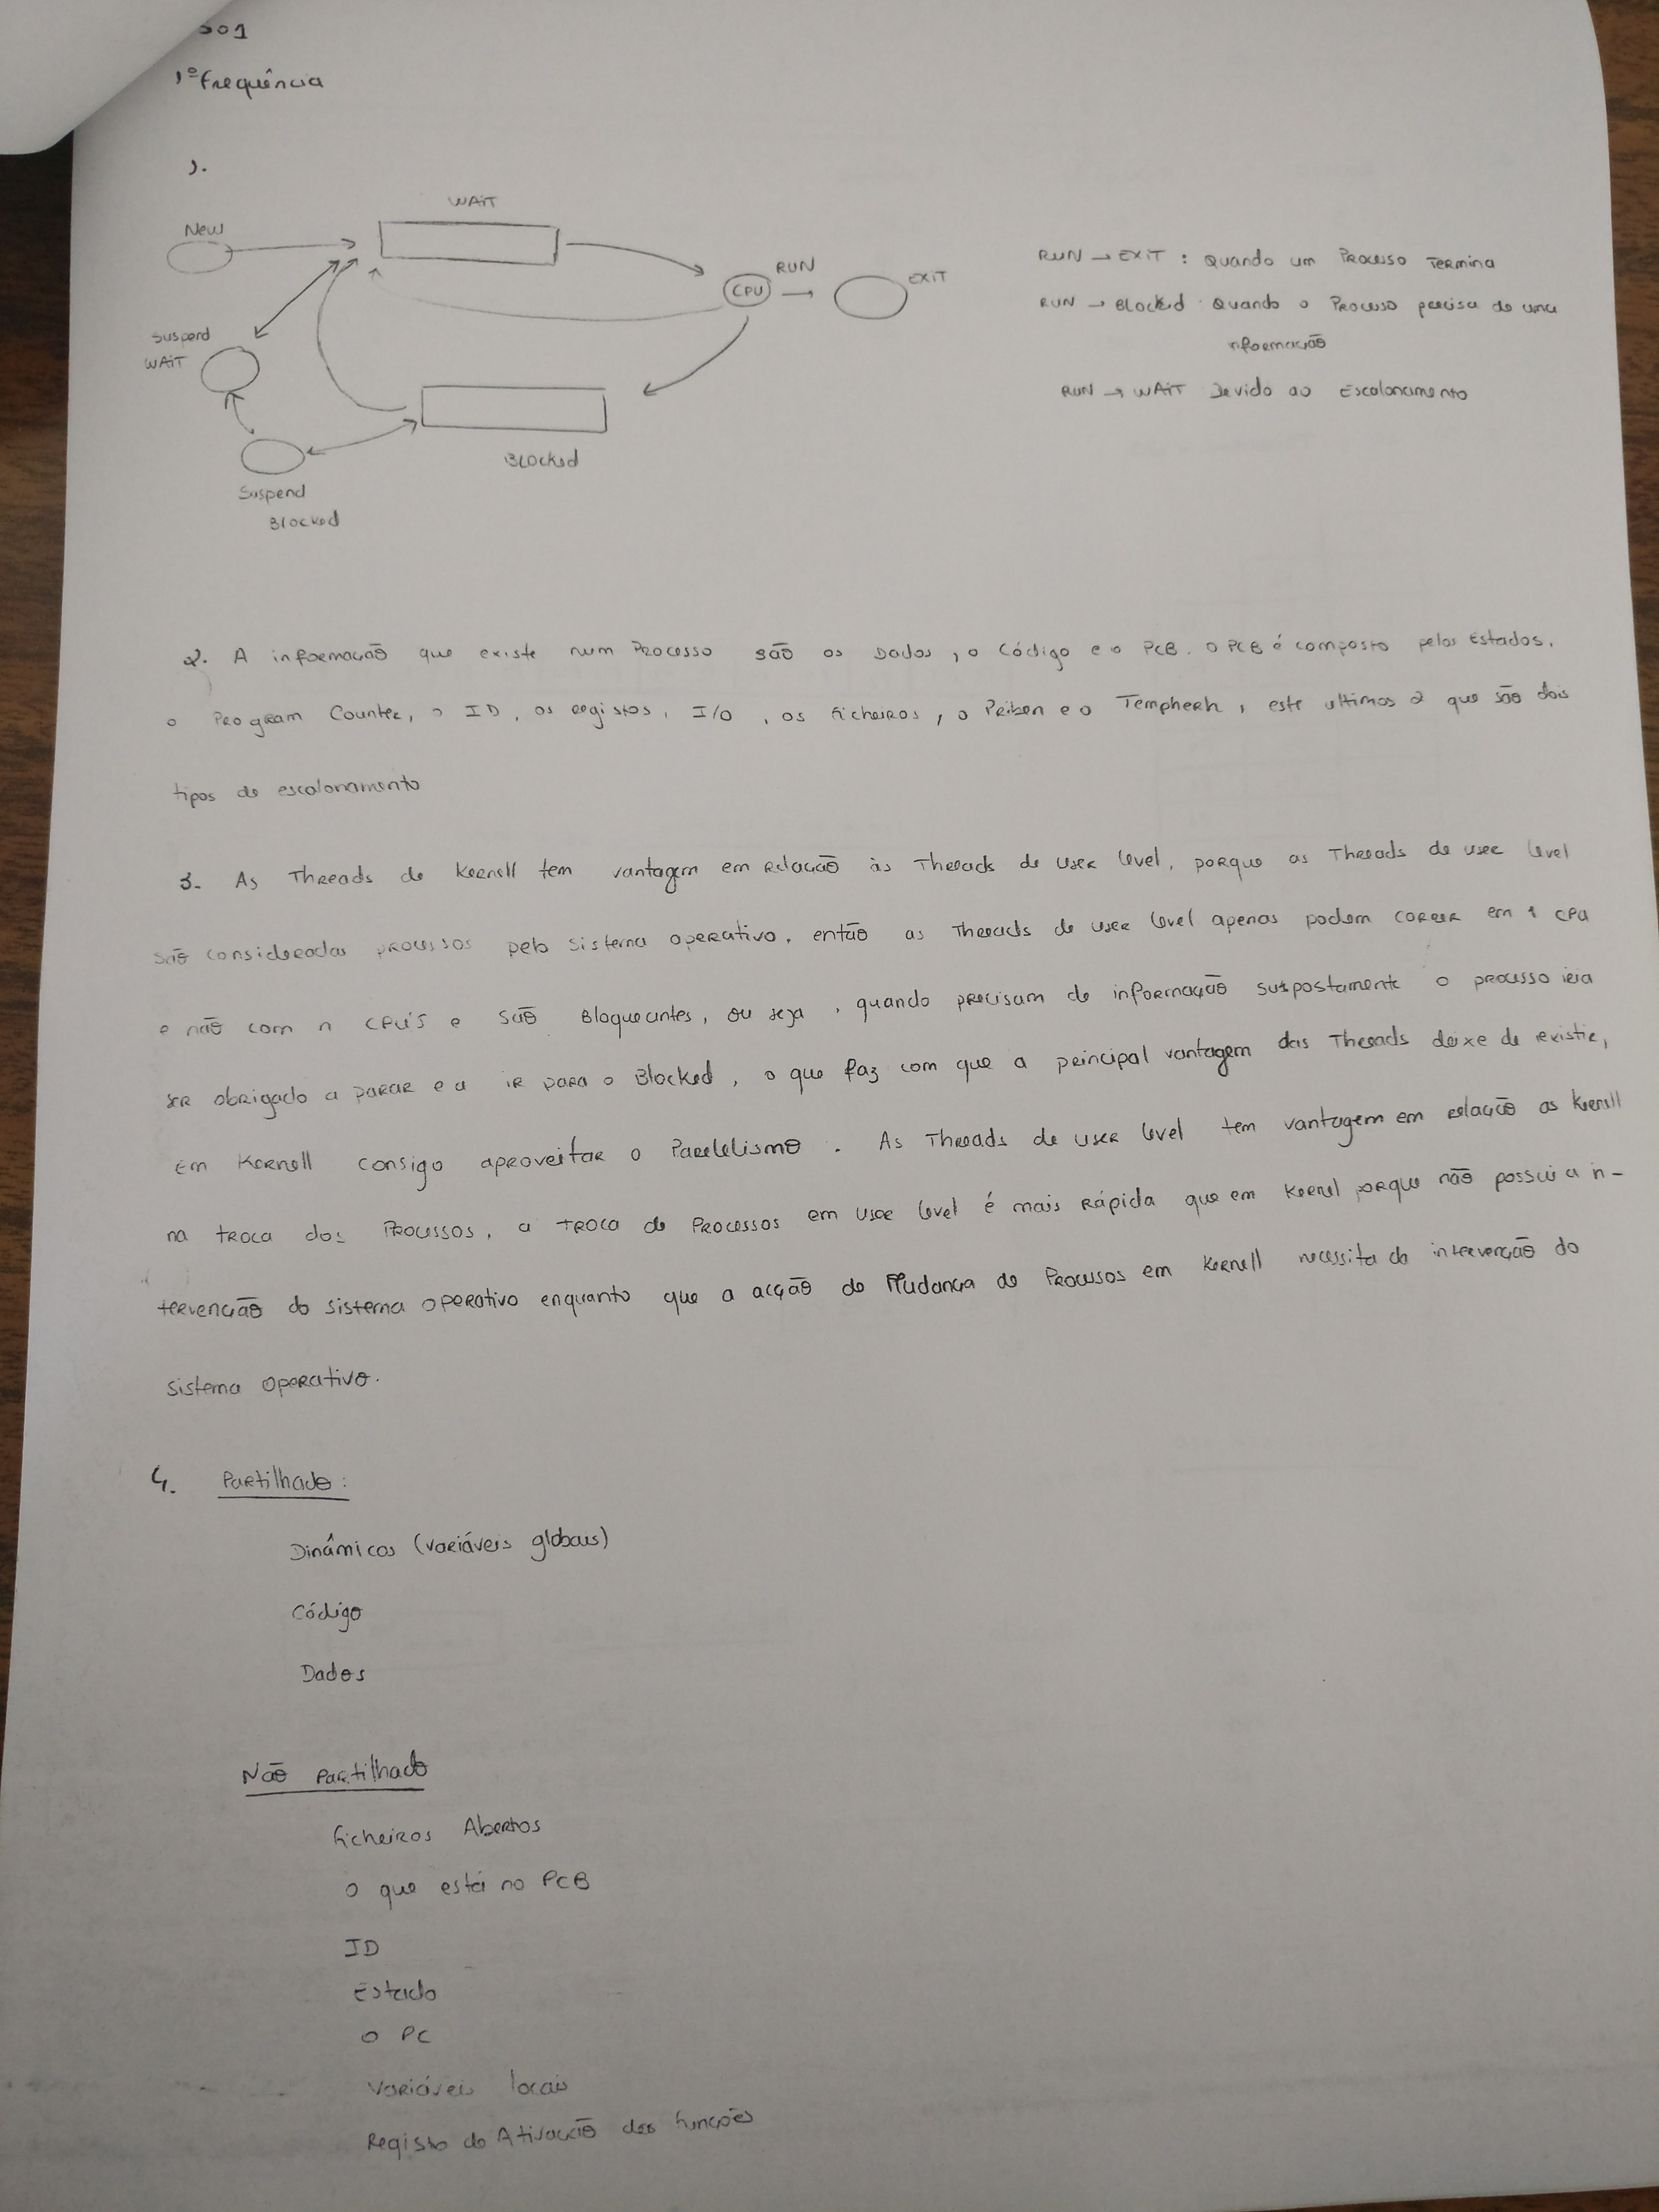 SO1
1º Frequência
1.
WAIT
New
RUN
CPU
EXIT
Suspend
WAIT
Blocked
Suspend
Blocked
RUN → EXIT : Quando um Processo Termina
RUN → Blocked Quando o Processo precisa de uma
informação
RUN → WAIT Devido ao Escalonamento
2. A informação que existe num Processo são os Dados, o Código e o PCB. O PCB é composto pelos Estados,
o Program Counter, o ID, os registos, I/O, os ficheiros, o e o este ultimos 2 que são dois
tipos de escalonamento
3. As Threads de Kernell tem vantagem em relação às Threads de user level, porque as Threads de user level
são consideradas processos pelo sistema operativo, então as Threads de user level apenas podem correr em 1 CPU
e não com n CPU'S e são Bloqueantes, ou seja, quando precisam de informação supostamente o processo iria
ser obrigado a parar e a ir para o Blocked, o que faz com que a principal vantagem das Threads deixe de existir,
em Kernell consigo aproveitar o Paralelismo. As Threads de user level tem vantagem em relação as Kernell
na troca dos Processos, a troca de Processos em user level é mais rápida que em Kernel porque não possui a in-
tervenção do sistema operativo enquanto que a acção de Mudança de Processos em Kernell necessita da intervenção do
sistema operativo.
4. Partilhado:
Dinâmicos (variáveis globais)
Código
Dados
Não Partilhado
ficheiros Abertos
o que está no PCB
ID
Estado
o PC
Variáveis locais
Registo de Ativação das funções